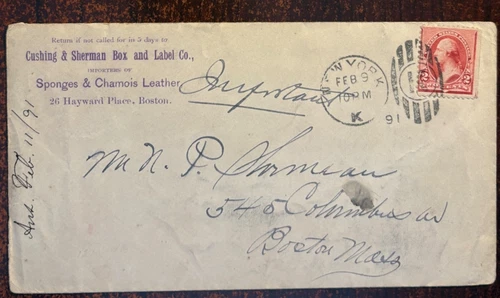 Return if not called for in 5 days to
Cushing & Sherman Box and Label Co.,
IMPORTERS OF
Sponges & Chamois Leather
26 Hayward Place, Boston.
Important
NEW YORK
FEB 9
10PM
91
K
Ans. Feb. 11/91
Mr N. P.
545 Columbus av
Boston Mass